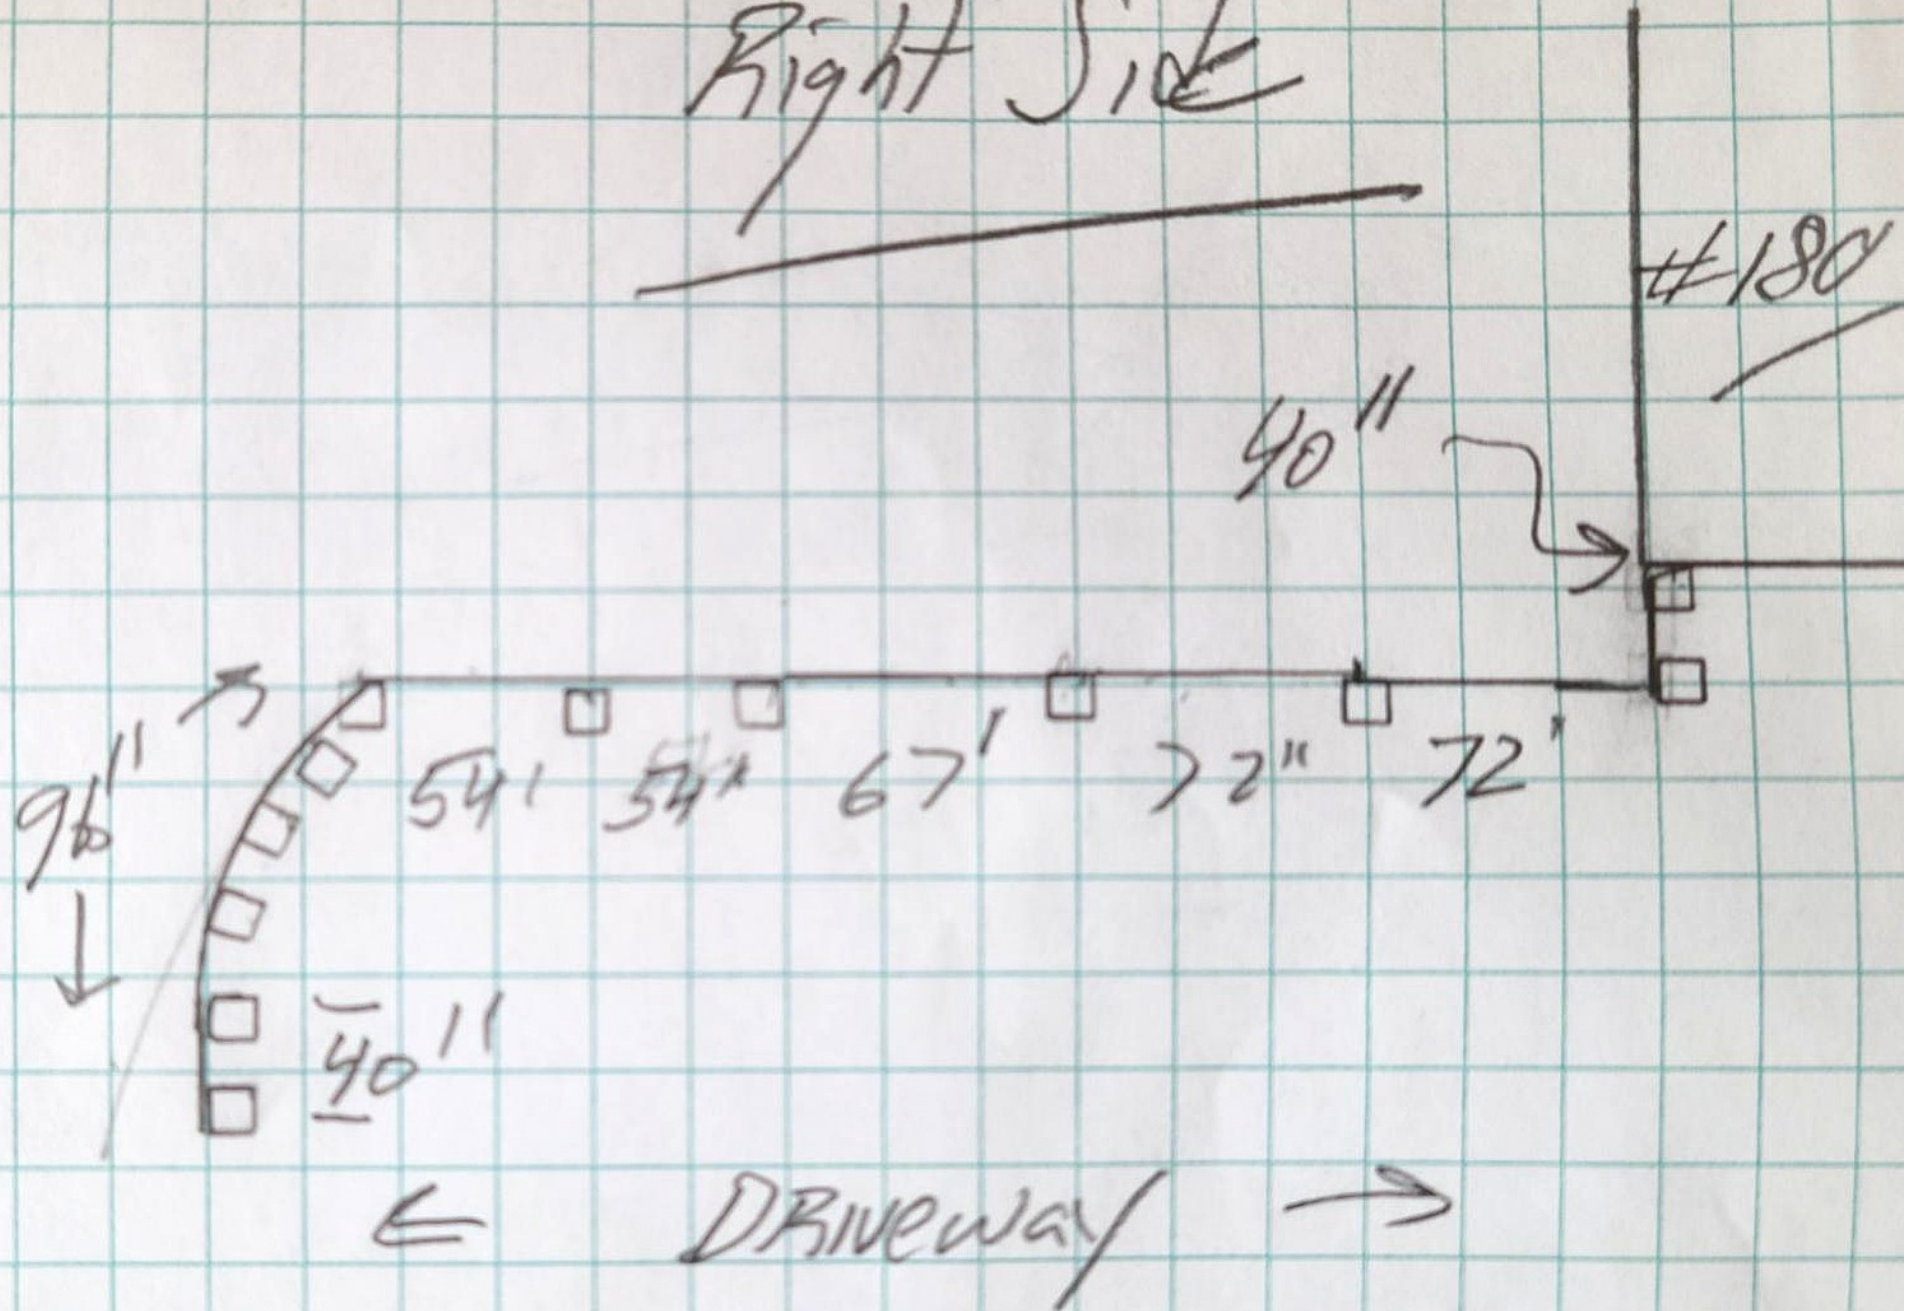 Right Side
#180
40"
96"
54' 54" 67' 72" 72'
40"
Driveway